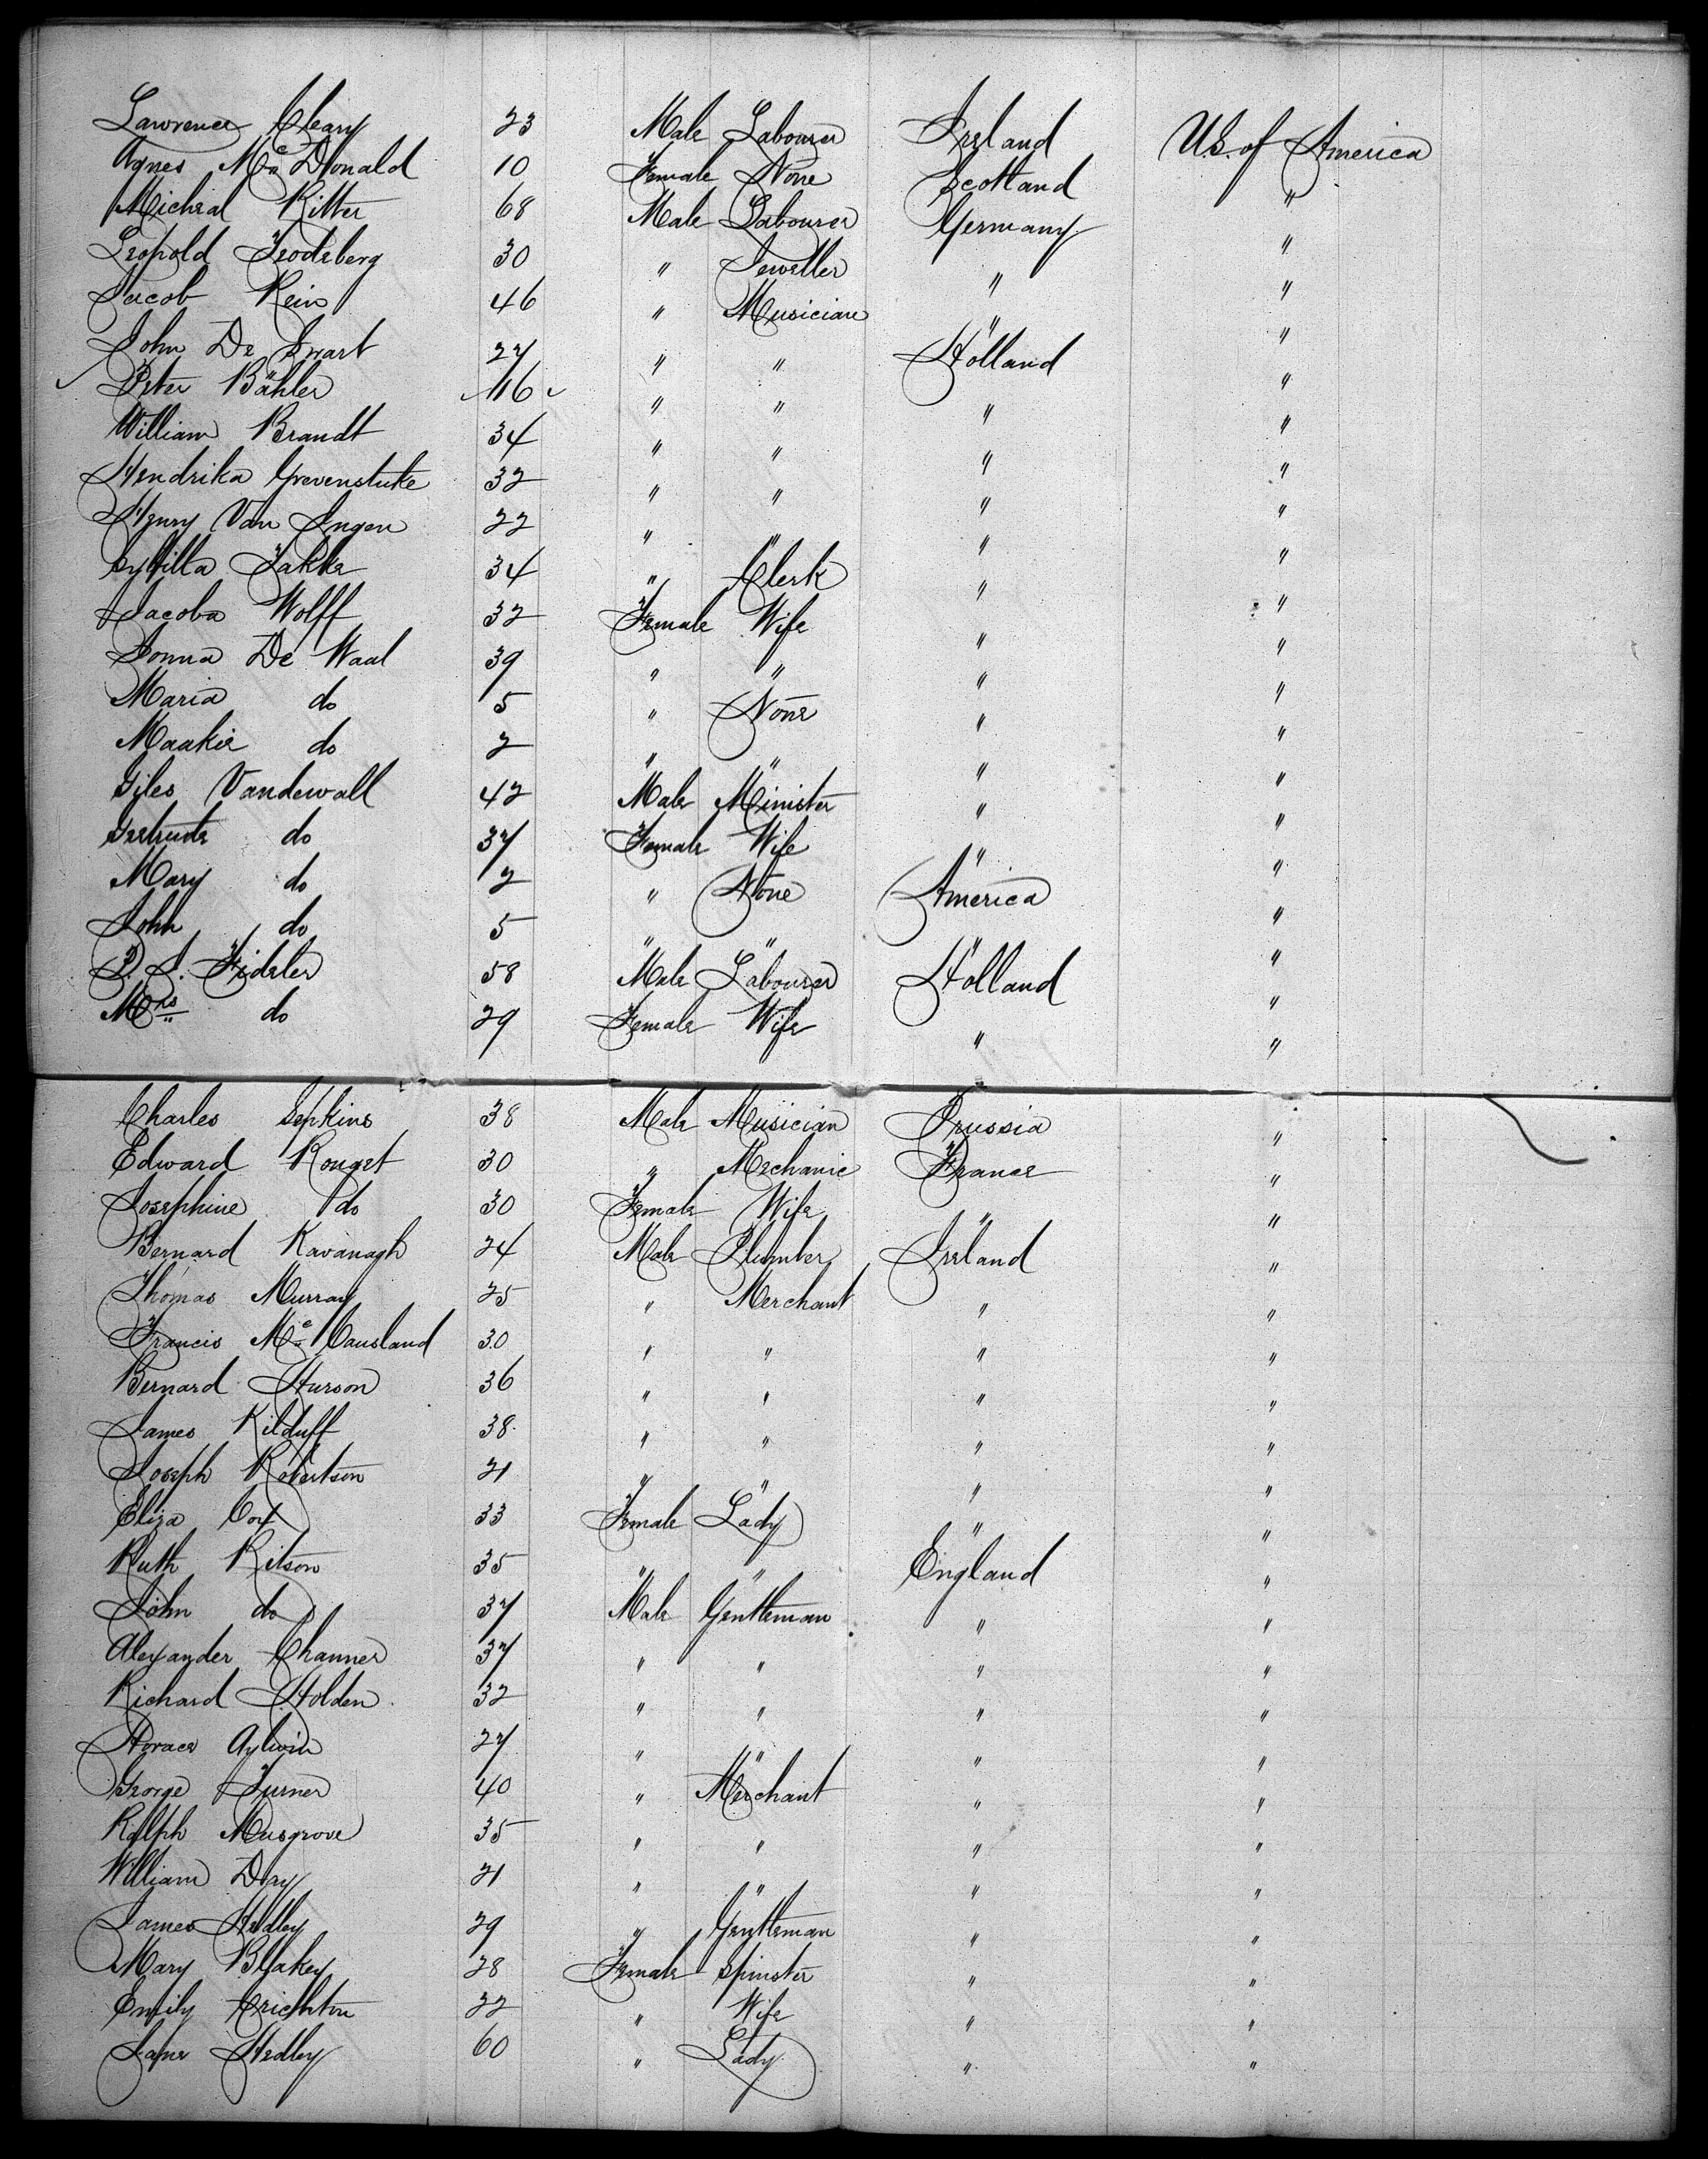 Lawrence Cleary 23 Male Labourer Ireland U.S. of America
Agnes McDonald 10 Female None Scotland "
Micheal Ritter 68 Male Labourer Germany "
Leopold 30 " Jeweller " "
Jacob Rein 46 " Musician " "
John De Swart 27 " " Holland "
Peter Bähler 16 " " " "
William Brandt 34 " " " "
Hendrika Grevenstuke 32 " " " "
Henry Van Ingen 22 " " " "
34 " Clerk " "
Jacoba Wolff 32 Female Wife " "
De Waal 39 " " " "
Maria do 5 " None " "
Maakie do 2 " " " "
Giles Vandewall 42 Male Minister " "
Gertrude do 37 Female Wife " "
Mary do 2 " None America "
John do 5 " " " "
Fideler 58 Male Labourer Holland "
Mrs do 29 Female Wife " "
Charles Sepkins 38 Male Musician Prussia "
Edward Rouget 30 " Mechanic France "
Josephine do 30 Female Wife " "
Bernard Kavanagh 24 Male Plumber Ireland "
Thomas Murray 25 " Merchant " "
Francis McCausland 30 " " " "
Bernard Hurson 36 " " " "
James Kilduff 38 " " " "
Joseph Robertson 21 " " " "
Eliza Cox 33 Female Lady " "
Ruth Ritson 35 " " England "
John do 37 Male Gentleman " "
Alexander Channer 37 " " " "
Richard Holden 32 " " " "
Horace Aylwin 27 " " " "
George Turner 40 " Merchant " "
Ralph Musgrove 35 " " " "
William Day 21 " " " "
James Hedley 29 " Gentleman " "
Mary Blakey 28 Female Spinster " "
Emily Crichton 22 " Wife " "
Jane Hedley 60 " Lady " "